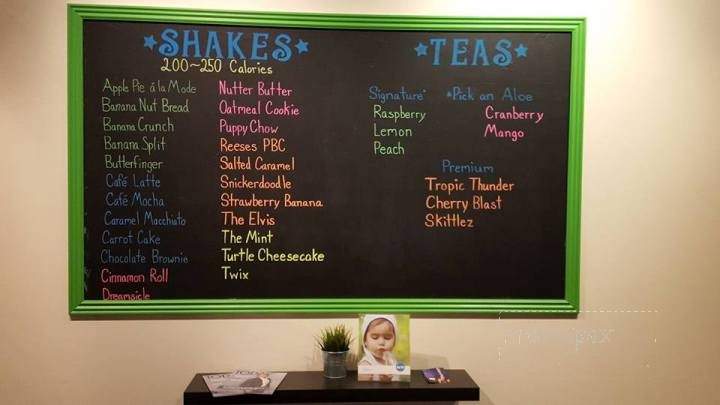 *SHAKES*
200~250 Calories
Apple Pie á la Mode
Banana Nut Bread
Banana Crunch
Banana Split
Butterfinger
Café Latte
Café Mocha
Caramel Macchiato
Carrot Cake
Chocolate Brownie
Cinnamon Roll
Dreamsicle
Nutter Butter
Oatmeal Cookie
Puppy Chow
Reeses PBC
Salted Caramel
Snickerdoodle
Strawberry Banana
The Elvis
The Mint
Turtle Cheesecake
Twix
*TEAS*
Signature*
Raspberry
Lemon
Peach
*Pick an Aloe
Cranberry
Mango
Premium
Tropic Thunder
Cherry Blast
Skittlez